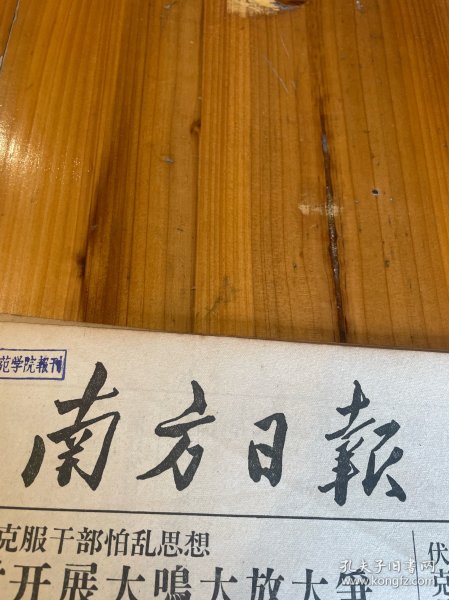 范学院報刊
南方日報
克服干部怕乱思想
开展大鳴大放大争
伏
克
孔夫子旧书网
www.kongfz.com